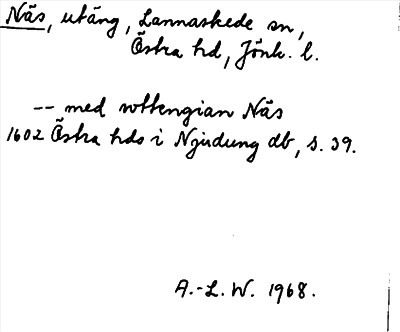 Näs, utäng, Lannaskede sn,
Östra hd, Jönk. l.
-- med rottengian Näs
1602 Östra hds i Njudung db, s. 39.
A.-L. W. 1968.